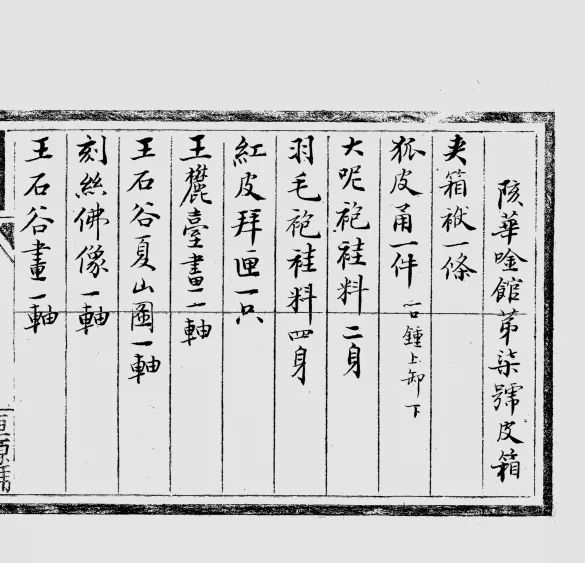 陔華唫館第柒號皮箱
夾箱袱一條
狐皮甬一件 一口鐘上卸下
大呢袍褂料二身
羽毛袍褂料四身
紅皮拜匣一只
王麓臺畫一軸
王石谷夏山圖一軸
刻絲佛像一軸
王石谷畫一軸